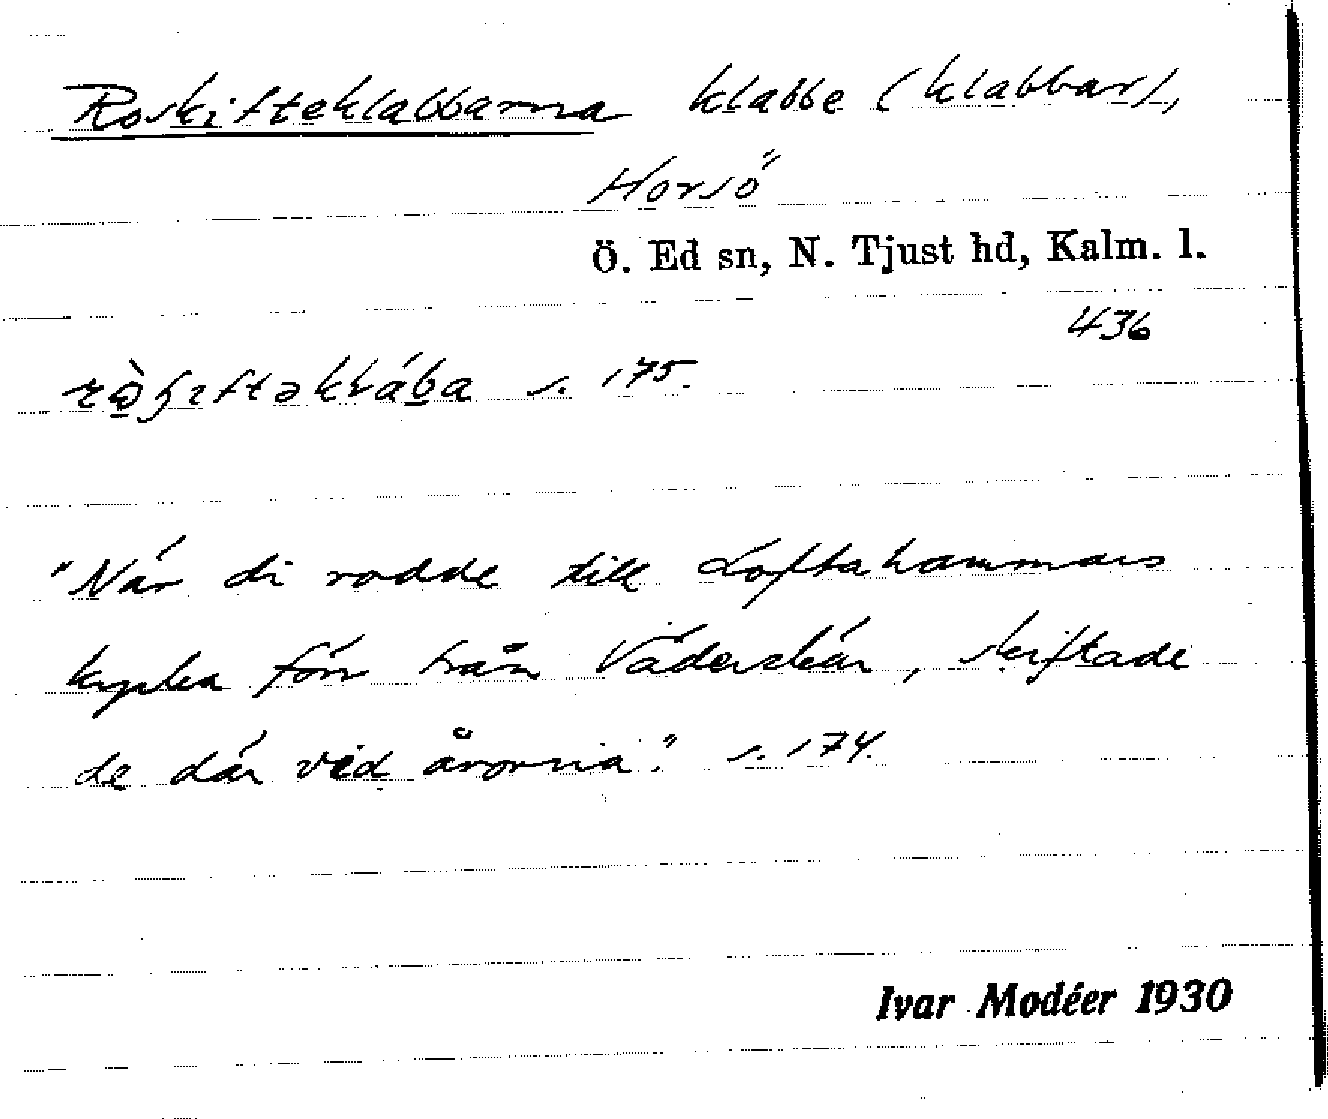 Roskifteklabbarna klabbe (klabbar),
Horsö
Ö. Ed sn, N. Tjust hd, Kalm. l.
436
s. 175.
"När di rodde till Loftahammars
kyrka förr från Väderskär, skiftade
de där vid årorna". s. 174.
Ivar Modéer 1930